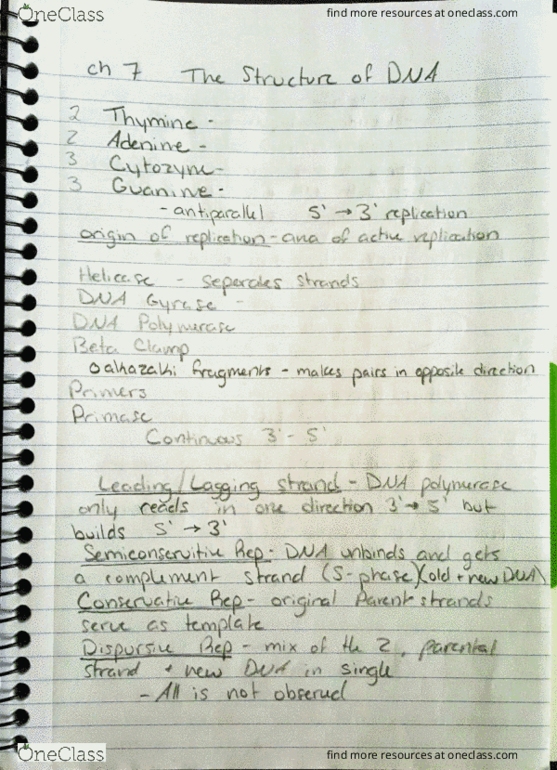 OneClass
find more resources at oneclass.com
ch 7 The Structure of DNA
2 Thymine -
2 Adenine -
3 Cytozyne-
3 Guanine -
- antiparallel 5' → 3' replication
origin of replication - area of active replication
Helicase - seperates strands
DNA Gyrase -
DNA Polymerase
Beta Clamp
Oakazaki fragments - makes pairs in opposite direction
Primers
Primase
Continuous 3' - 5'
Leading/Lagging strand - DNA polymerase
only reads in one direction 3' → 5' but
builds 5' → 3'
Semiconservitive Rep - DNA unbinds and gets
a complement strand (S-phase)(old + new DNA)
Conservative Rep - original Parent strands
serve as template
Dispursive Rep - mix of the 2, parental
strand + new DNA in single
- All is not observed
OneClass
find more resources at oneclass.com